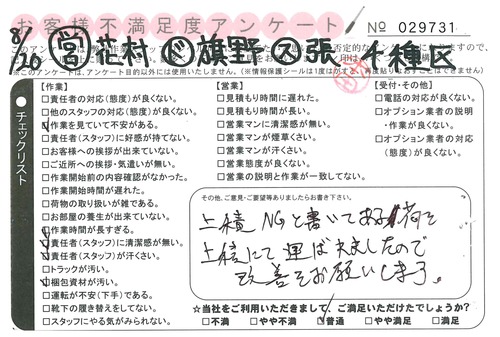 お客様不満足度アンケート
№ 029731
8/20 営 花村 ド 旗野 ス 張 千種区
このアン
※このアンケートは、アンケート目的以外には使用いたしません。(※情報保護シールは1度はがすと、再度貼りなおすことはできません)
チェックリスト
【作業】
□責任者の対応(態度)が良くない。
□他のスタッフの対応(態度)が良くない。
□作業を見ていて不安がある。
□責任者(スタッフ)に好感が持てない。
□お客様への挨拶が出来ていない。
□ご近所への挨拶・気遣いが無い。
□作業開始前の内容確認がなかった。
□作業開始時間が遅れた。
□荷物の取り扱いが雑である。
□お部屋の養生が出来ていない。
□作業時間が長すぎる。
□責任者(スタッフ)に清潔感が無い。
□責任者(スタッフ)が汗くさい。
□トラックが汚い。
□梱包資材が汚い。
□運転が不安(下手)である。
□靴下の履き替えをしてない。
□スタッフにやる気がみられない。
【営業】
□見積もり時間に遅れた。
□見積もり時間が長い。
□営業マンに清潔感が無い。
□営業マンが煙草くさい。
□営業マンが汗くさい。
□営業態度が良くない。
□営業の説明と作業が一致してない。
【受付・その他】
□電話の対応が良くない。
□オプション業者の説明
・作業が良くない。
□オプション業者の対応
(態度)が良くない。
その他、ご意見・ご要望等ありましたらお書き下さい。
上積NGと書いてある荷を
上積にて運ばれましたので
改善をお願いします。
☆当社をご利用いただきまして、ご満足いただけたでしょうか?
□不満 □やや不満 □普通 □やや満足 □満足